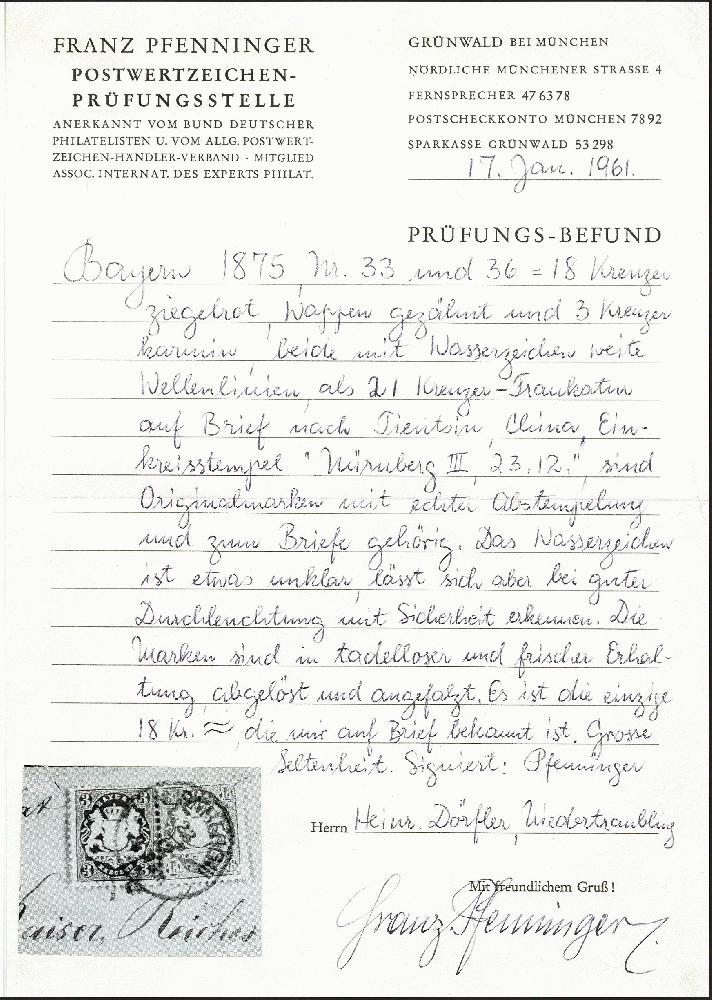 FRANZ PFENNINGER
POSTWERTZEICHEN-
PRÜFUNGSSTELLE
ANERKANNT VOM BUND DEUTSCHER
PHILATELISTEN U. VOM ALLG. POSTWERT-
ZEICHEN-HÄNDLER-VERBAND · MITGLIED
ASSOC. INTERNAT. DES EXPERTS PHILAT.
GRÜNWALD BEI MÜNCHEN
NÖRDLICHE MÜNCHENER STRASSE 4
FERNSPRECHER 476378
POSTSCHECKKONTO MÜNCHEN 7892
SPARKASSE GRÜNWALD 53298
17. Jan. 1961.
PRÜFUNGS-BEFUND
Bayern 1875 Nr. 33 und 36 = 18 Kreuzer
ziegelrot, Wappen gezähnt und 3 Kreuzer
karmin, beide mit Wasserzeichen weite
Wellenlinien, als 21 Kreuzer-Frankatur
auf Brief nach Tientsin, China, Ein-
kreisstempel "Nürnberg III, 23.12.", sind
Originalmarken mit echter Abstempelung
und zum Briefe gehörig. Das Wasserzeichen
ist etwas unklar, lässt sich aber bei guter
Durchleuchtung mit Sicherheit erkennen. Die
Marken sind in tadelloser und frischer Erhal-
tung, abgelöst und angefalzt. Es ist die einzige
18 Kr. ≈, die mir auf Brief bekannt ist. Grosse
Seltenheit. Signiert: Pfenninger
Herrn Heinr. Dörfler, Niedertraubling
Mit freundlichem Gruß!
Franz Pfenninger
Kaiser, Reiches